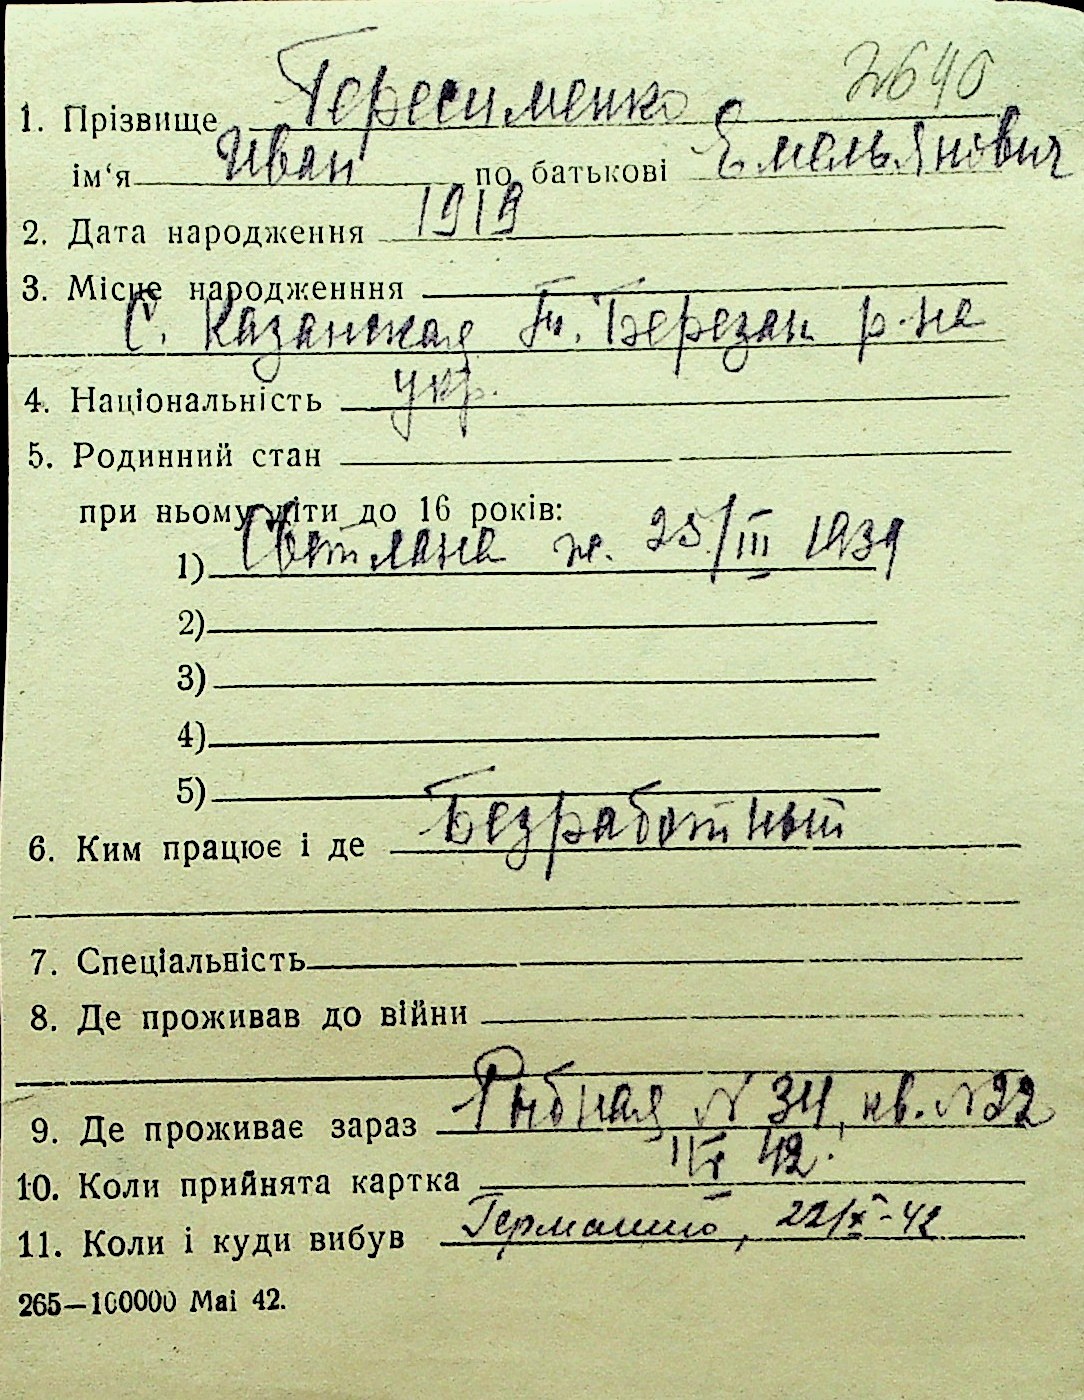 2640
1. Прізвище Гересименко
ім‘я Иван по батькові Емельянович
2. Дата народження 1919
3. Місце народженння
С. Казанская Березан р-на
4. Національність укр.
5. Родинний стан
при ньому діти до 16 років:
1) Светлана ж. 25/III 1939
2)
3)
4)
5)
6. Ким працює і де Безработный
7. Спеціальність
8. Де проживав до війни
9. Де проживає зараз Рыбная № 34, кв. № 22
10. Коли прийнята картка 42.
11. Коли і куди вибув Германию, 22/X-42
265—100000 Маі 42.